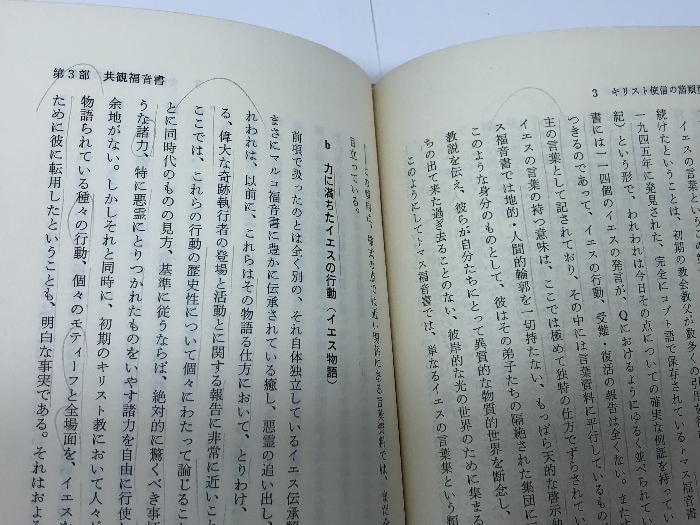 3 キリスト使信の諸類
イエスの言葉と
続けたということは、初期の教会教父が数多
一九四五年に発見された、完全にコプト語で保存されているトマス福音
紀）という形で、われわれは今日その点についての確実な例証を持ってい
書には一一四個のイエスの発言が、Qにおけるようにゆるく並べられて
つきるのであって、イエスの行動、受難・復活の報告は全くない。また
主の言葉として記されており、その中には言葉資料に平行しているもの
イエスの言葉の持つ意味は、ここでは極めて独特の仕方でずらされて
ス福音書では地的・人間的輪郭を一切持たない、もっぱら天的な啓示
このような身分のものとして、彼はその弟子たちの隔絶された集団に
教説を伝え、彼らが自分たちにとって異質的な物質的世界を断念し、
ちの出て来た過ぎ去ることのない、彼岸的な光の世界のために集まる
このようにしてトマス福音書では、単なるイエスの言葉集という類
第3部 共観福音書
目立っている。
b 力に満ちたイエスの行動（イエス物語）
前項で扱ったのとは全く別の、それ自体独立しているイエス伝承類
まさにマルコ福音書に豊かに伝承されている癒し、悪霊の追い出し、
れわれは、以前に、これらはその物語る仕方において、とりわけ、
る、偉大な奇跡執行者の登場と活動とに関する報告に非常に近いこと
ここでは、これらの行動の歴史性について個々にわたって論じるこ
とに同時代のものの見方、基準に従うならば、絶対的に驚くべき事
うな諸力、特に悪霊にとりつかれたものをいやす諸力を自由に行使
余地がない。しかしそれと同時に、初期のキリスト教において人々が
物語られている種々の行動、個々のモティーフと全場面を、イエス
ために彼に転用したということも、明白な事実である。それはおよ